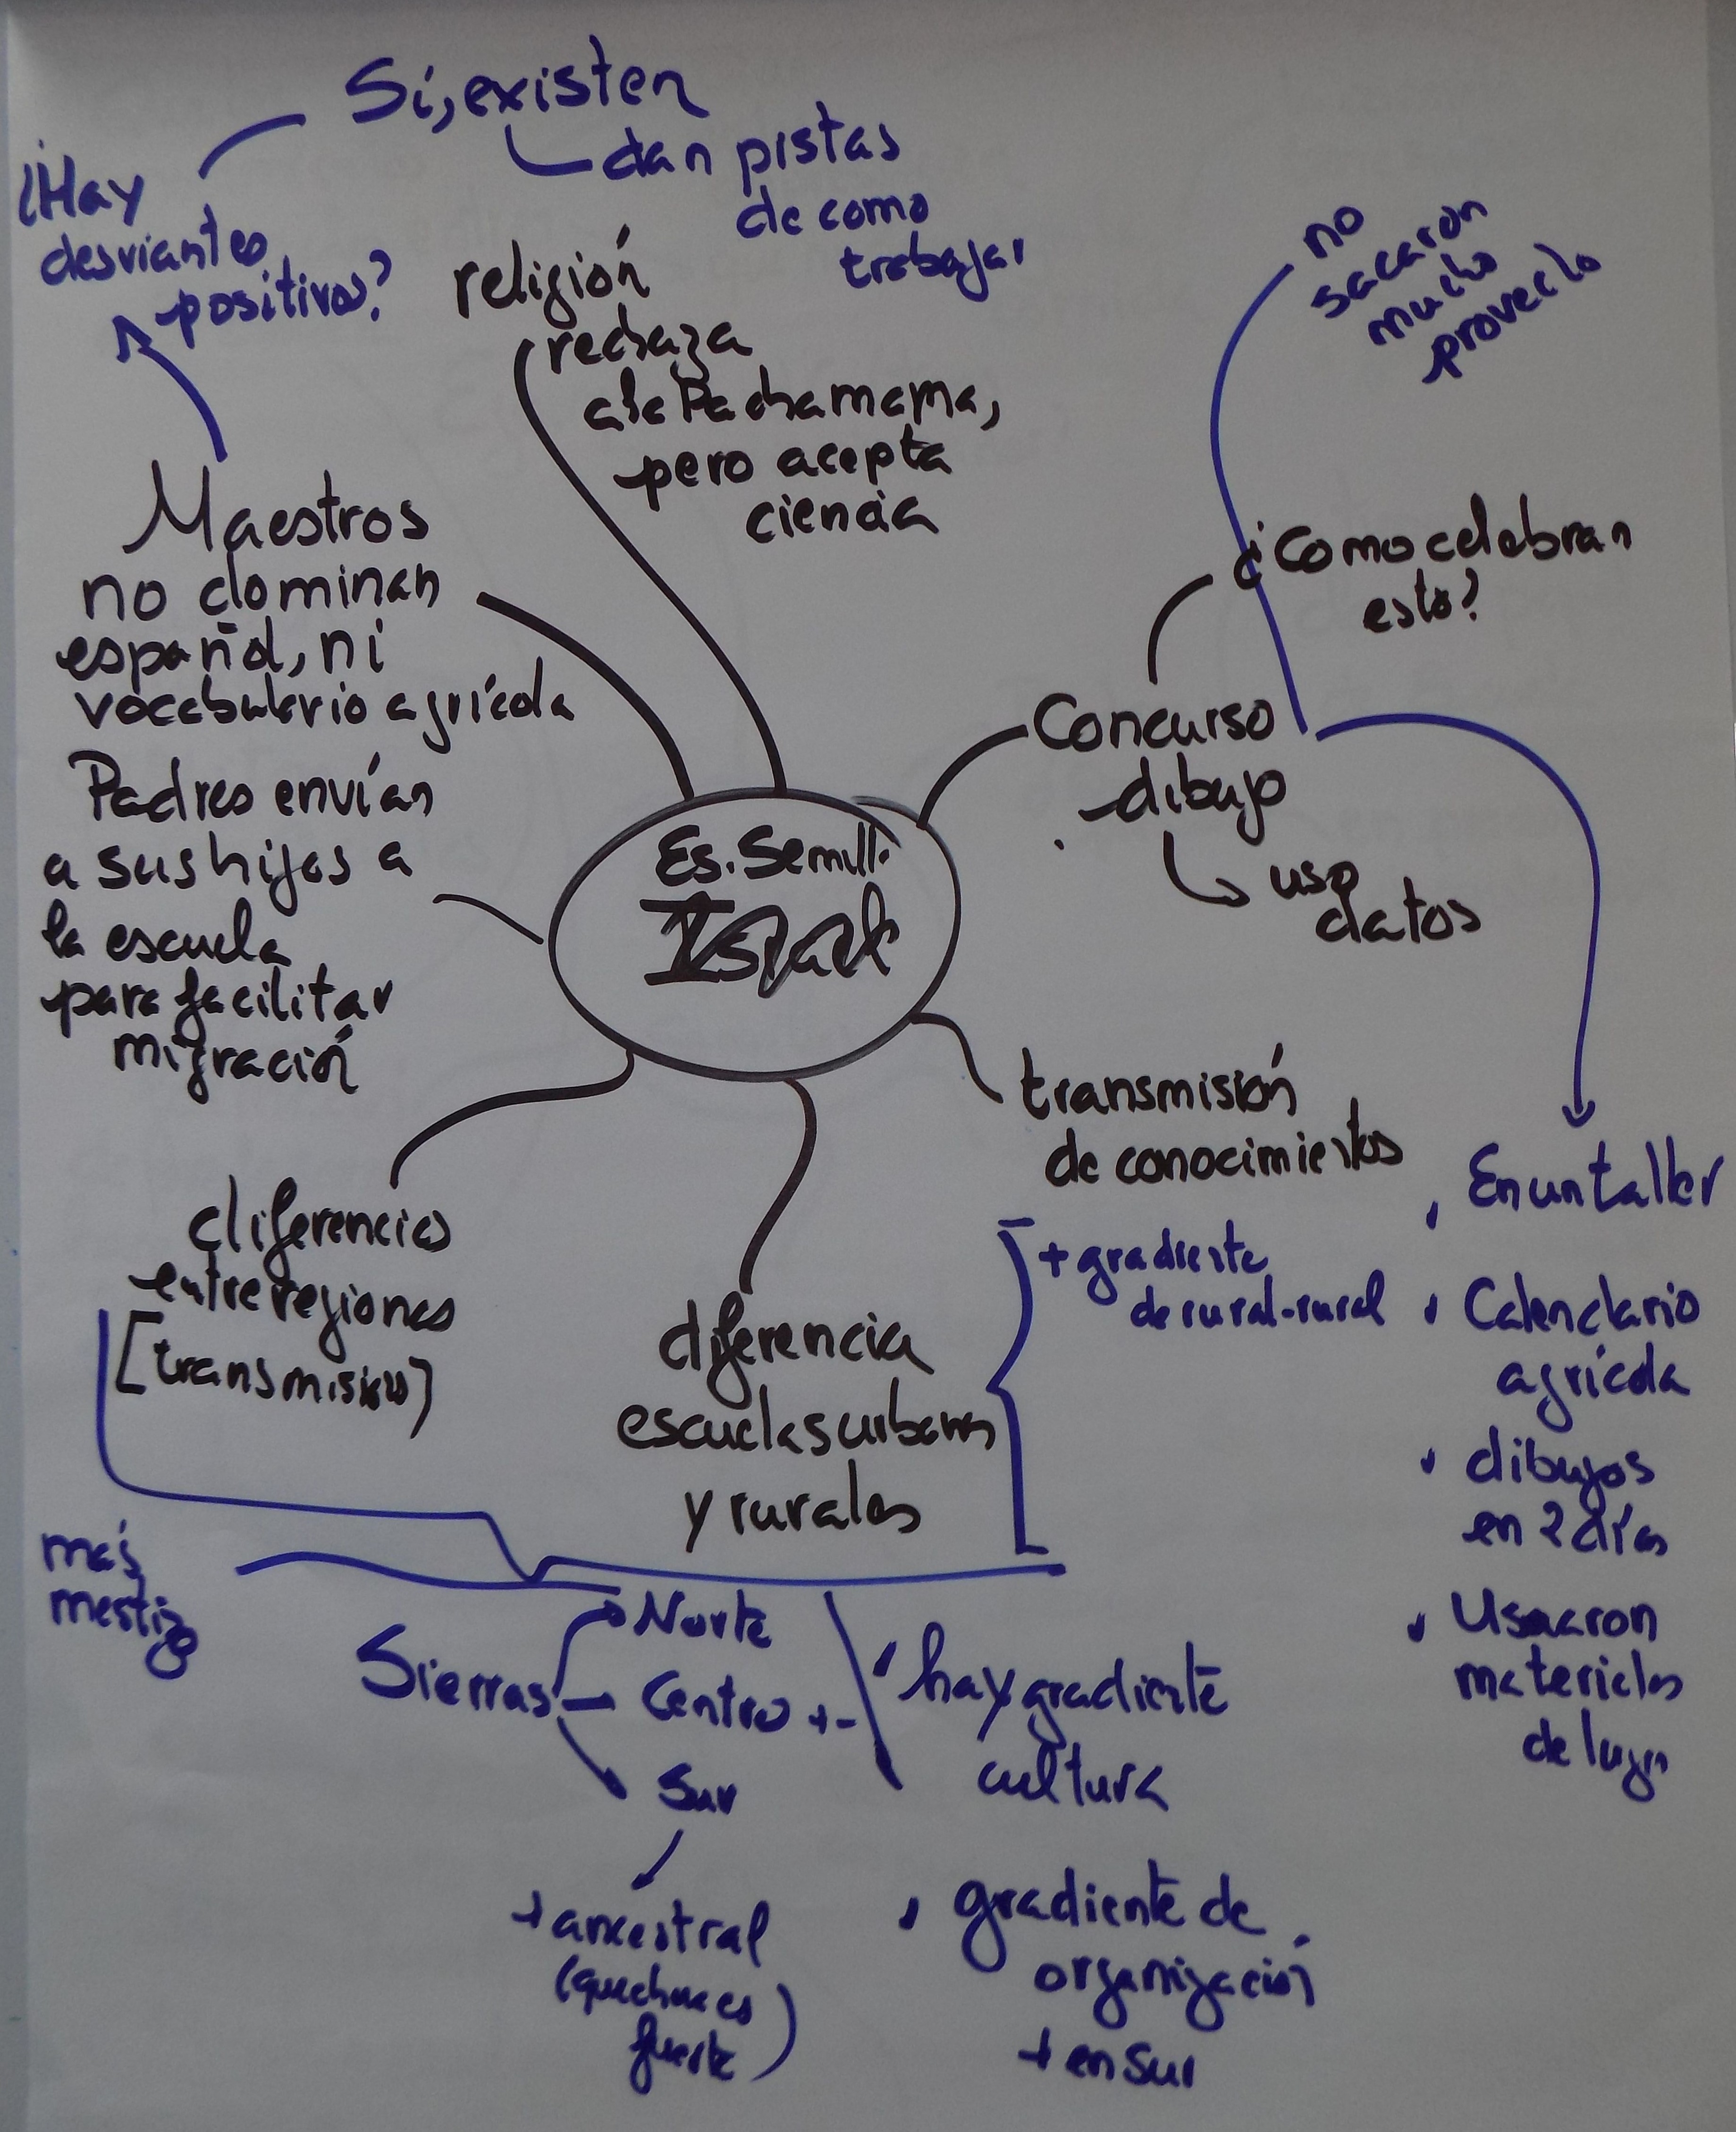 Sí, existen
dan pistas
de como
trabajar
¿Hay
desviantes
positivos?
religión
rechaza
a la Pachamama,
pero acepta
ciencia
no
sacaron
mucho
provecho
Maestros
no dominan
español, ni
vocabulario agrícola
¿Como celebran
esto?
Concurso
dibujo
uso
datos
Padres envían
a sus hijos a
la escuela
para facilitar
migración
Es. Semill.
transmisión
de conocimientos
diferencias
entre regiones
[transmisión]
diferencia
escuelas urbanas
y rurales
+ gradiente
de rural-rural
En un taller
Calendario
agrícola
dibujos
en 2 días
Usaron
materiales
de lugar
más
mestizo
Sierras
Norte
Centro +-
Sur
+ ancestral
(quechua es
fuerte)
hay gradiente
cultura
gradiente de
organización
+ en sur